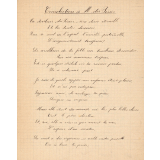 Consolation à M. du Périer
Ta douleur, du Périer, sera donc éternelle
Et les tristes discours
Que te met en l'esprit l'amitié paternelle
L'augmenteront toujours
Le malheur de ta fille au tombeau descendue
Par un commun trépas
Est-ce quelque dédale où ta raison perdue
Ne se retrouve pas
Je sais de quels appas son enfance était pleine
Et n'ai pas entrepris
Injurieux ami, de soulager ta peine
Avecque son mépris
Mais elle était du monde où les plus belles choses
Ont le pire destin
Et rose elle a vécu ce que vivent les roses
L'espace d'un matin